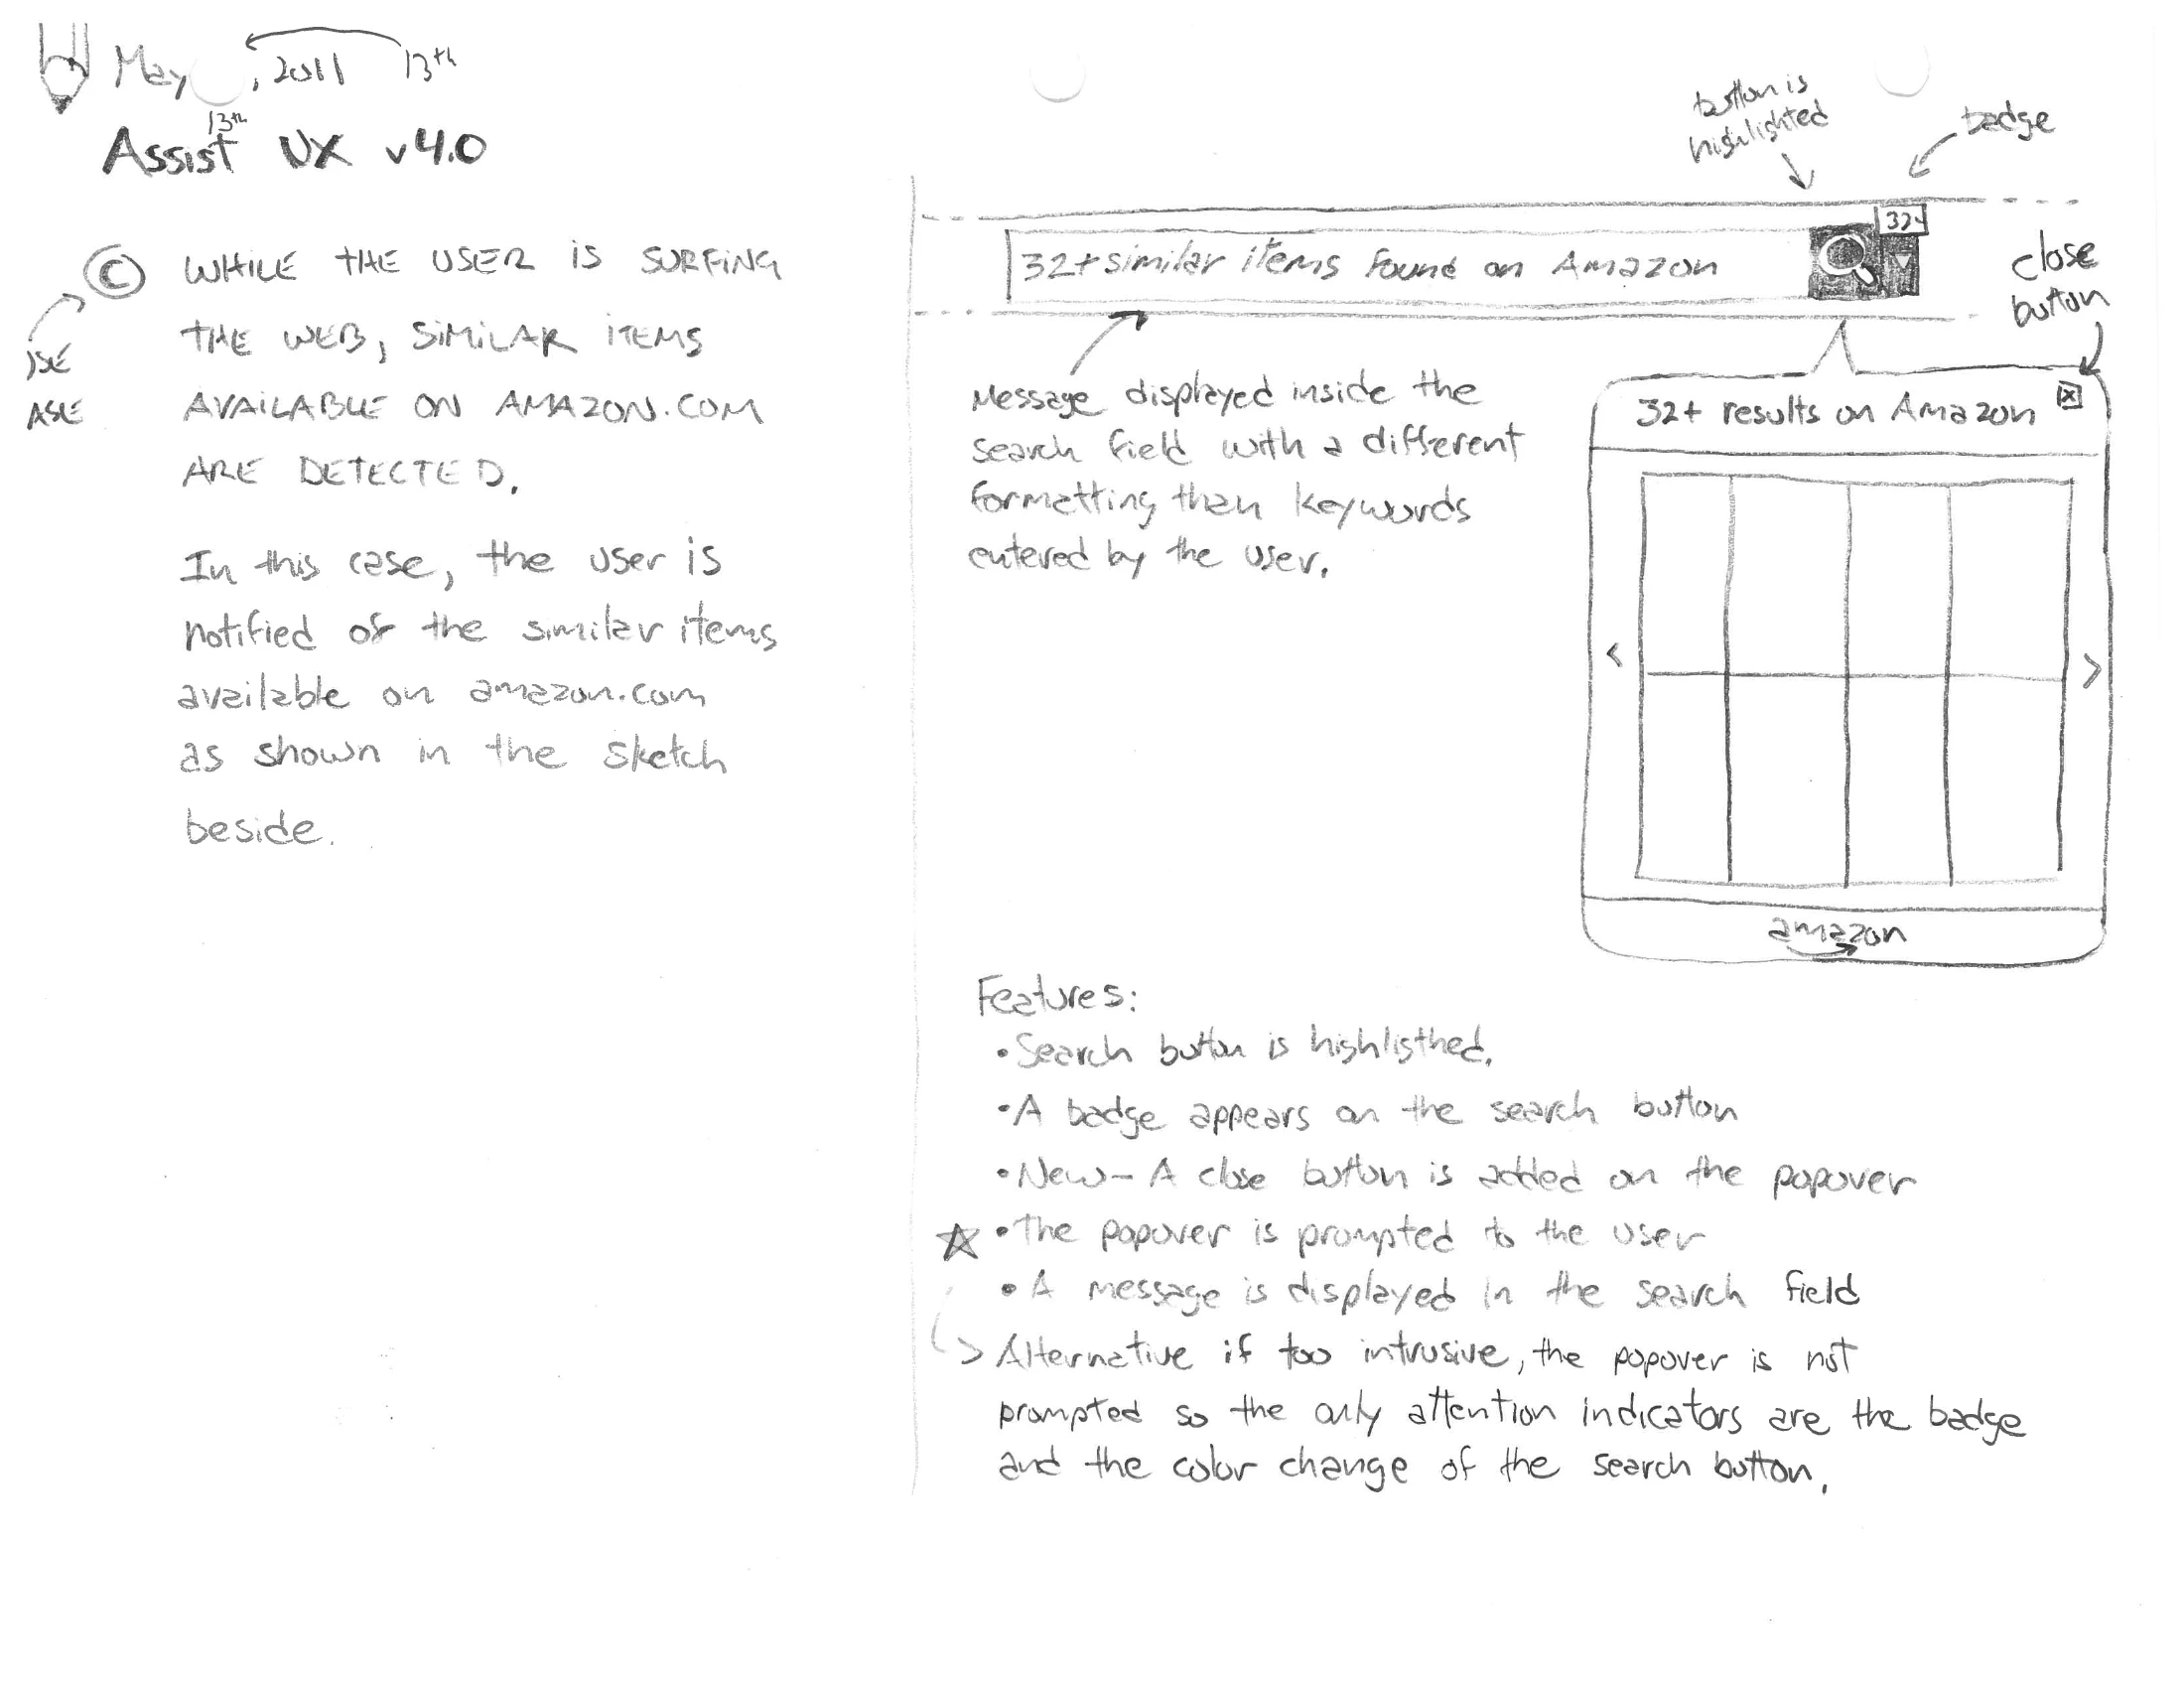 May , 2011 13th
13th
Assist UX v4.0
C WHILE THE USER IS SURFING
THE WEB, SIMILAR ITEMS
AVAILABLE ON AMAZON.COM
ARE DETECTED.
SE
ASE
In this case, the user is
notified of the similar items
available on amazon.com
as shown in the sketch
beside.
button is
highlighted
badge
32+
32+ similar items found on Amazon
close
button
Message displayed inside the
search field with a different
formatting than keywords
entered by the user.
32+ results on Amazon x
< >
amazon
Features:
• Search button is highlisthed.
• A badge appears on the search button
• New - A close button is added on the popover
• The popover is prompted to the user
• A message is displayed in the search field
> Alternative if too intrusive, the popover is not
prompted so the only attention indicators are the badge
and the color change of the search button.